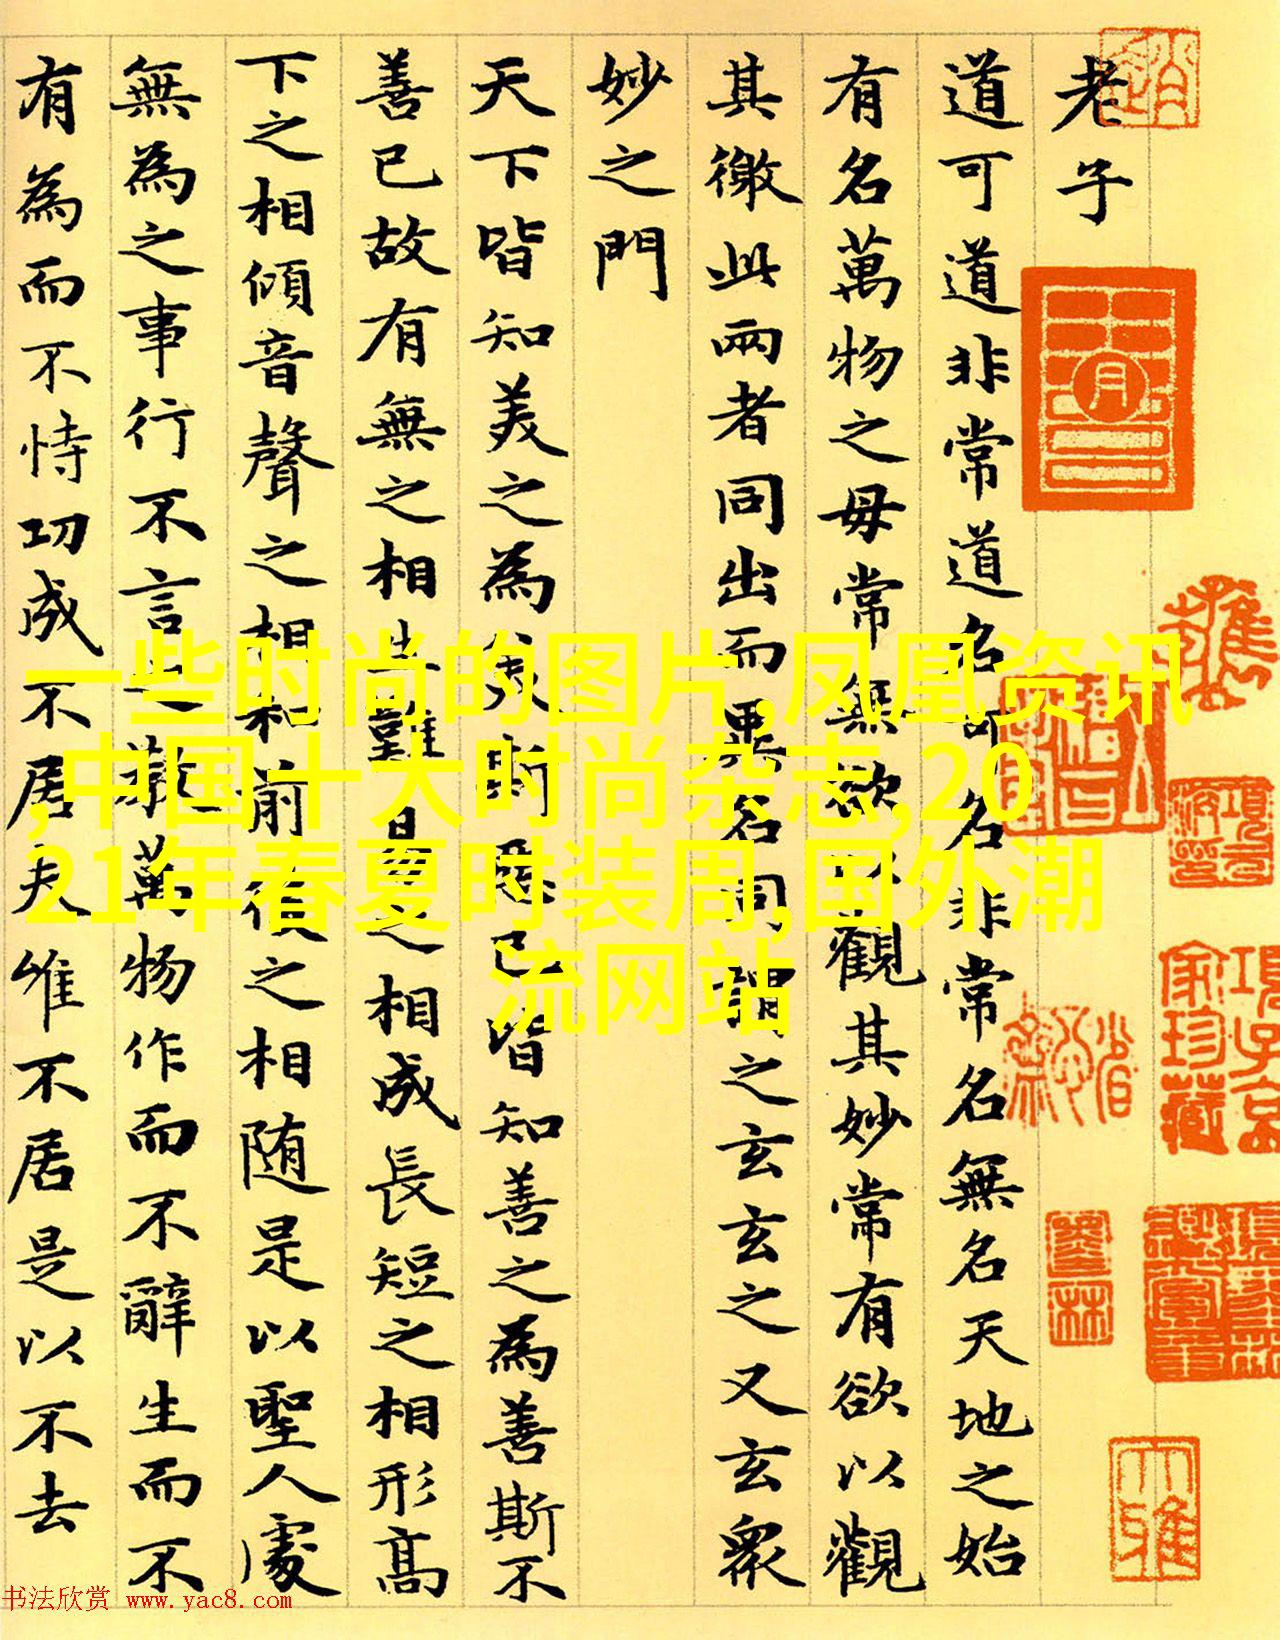 老子
道可道非常道名可名非常名無名天地之始
有名萬物之母常無欲以觀其妙常有欲以觀
其徼此兩者同出而異名同謂之玄玄之又玄衆
妙之門
天下皆知美之為美斯惡已皆知善之為善斯不
善已故有無之相生難易之相成長短之相形高
下之相傾音聲之相和前後之相随是以聖人處
無為之事行不言之教萬物作而不辭生而不
有為而不恃功成不居夫唯不居是以不去
項子京
家珍藏
一些时尚的图片,凤凰资讯
,中国十大时尚杂志,20
21年春夏时装周,国外潮
流网站
书法欣赏 www.yac8.com